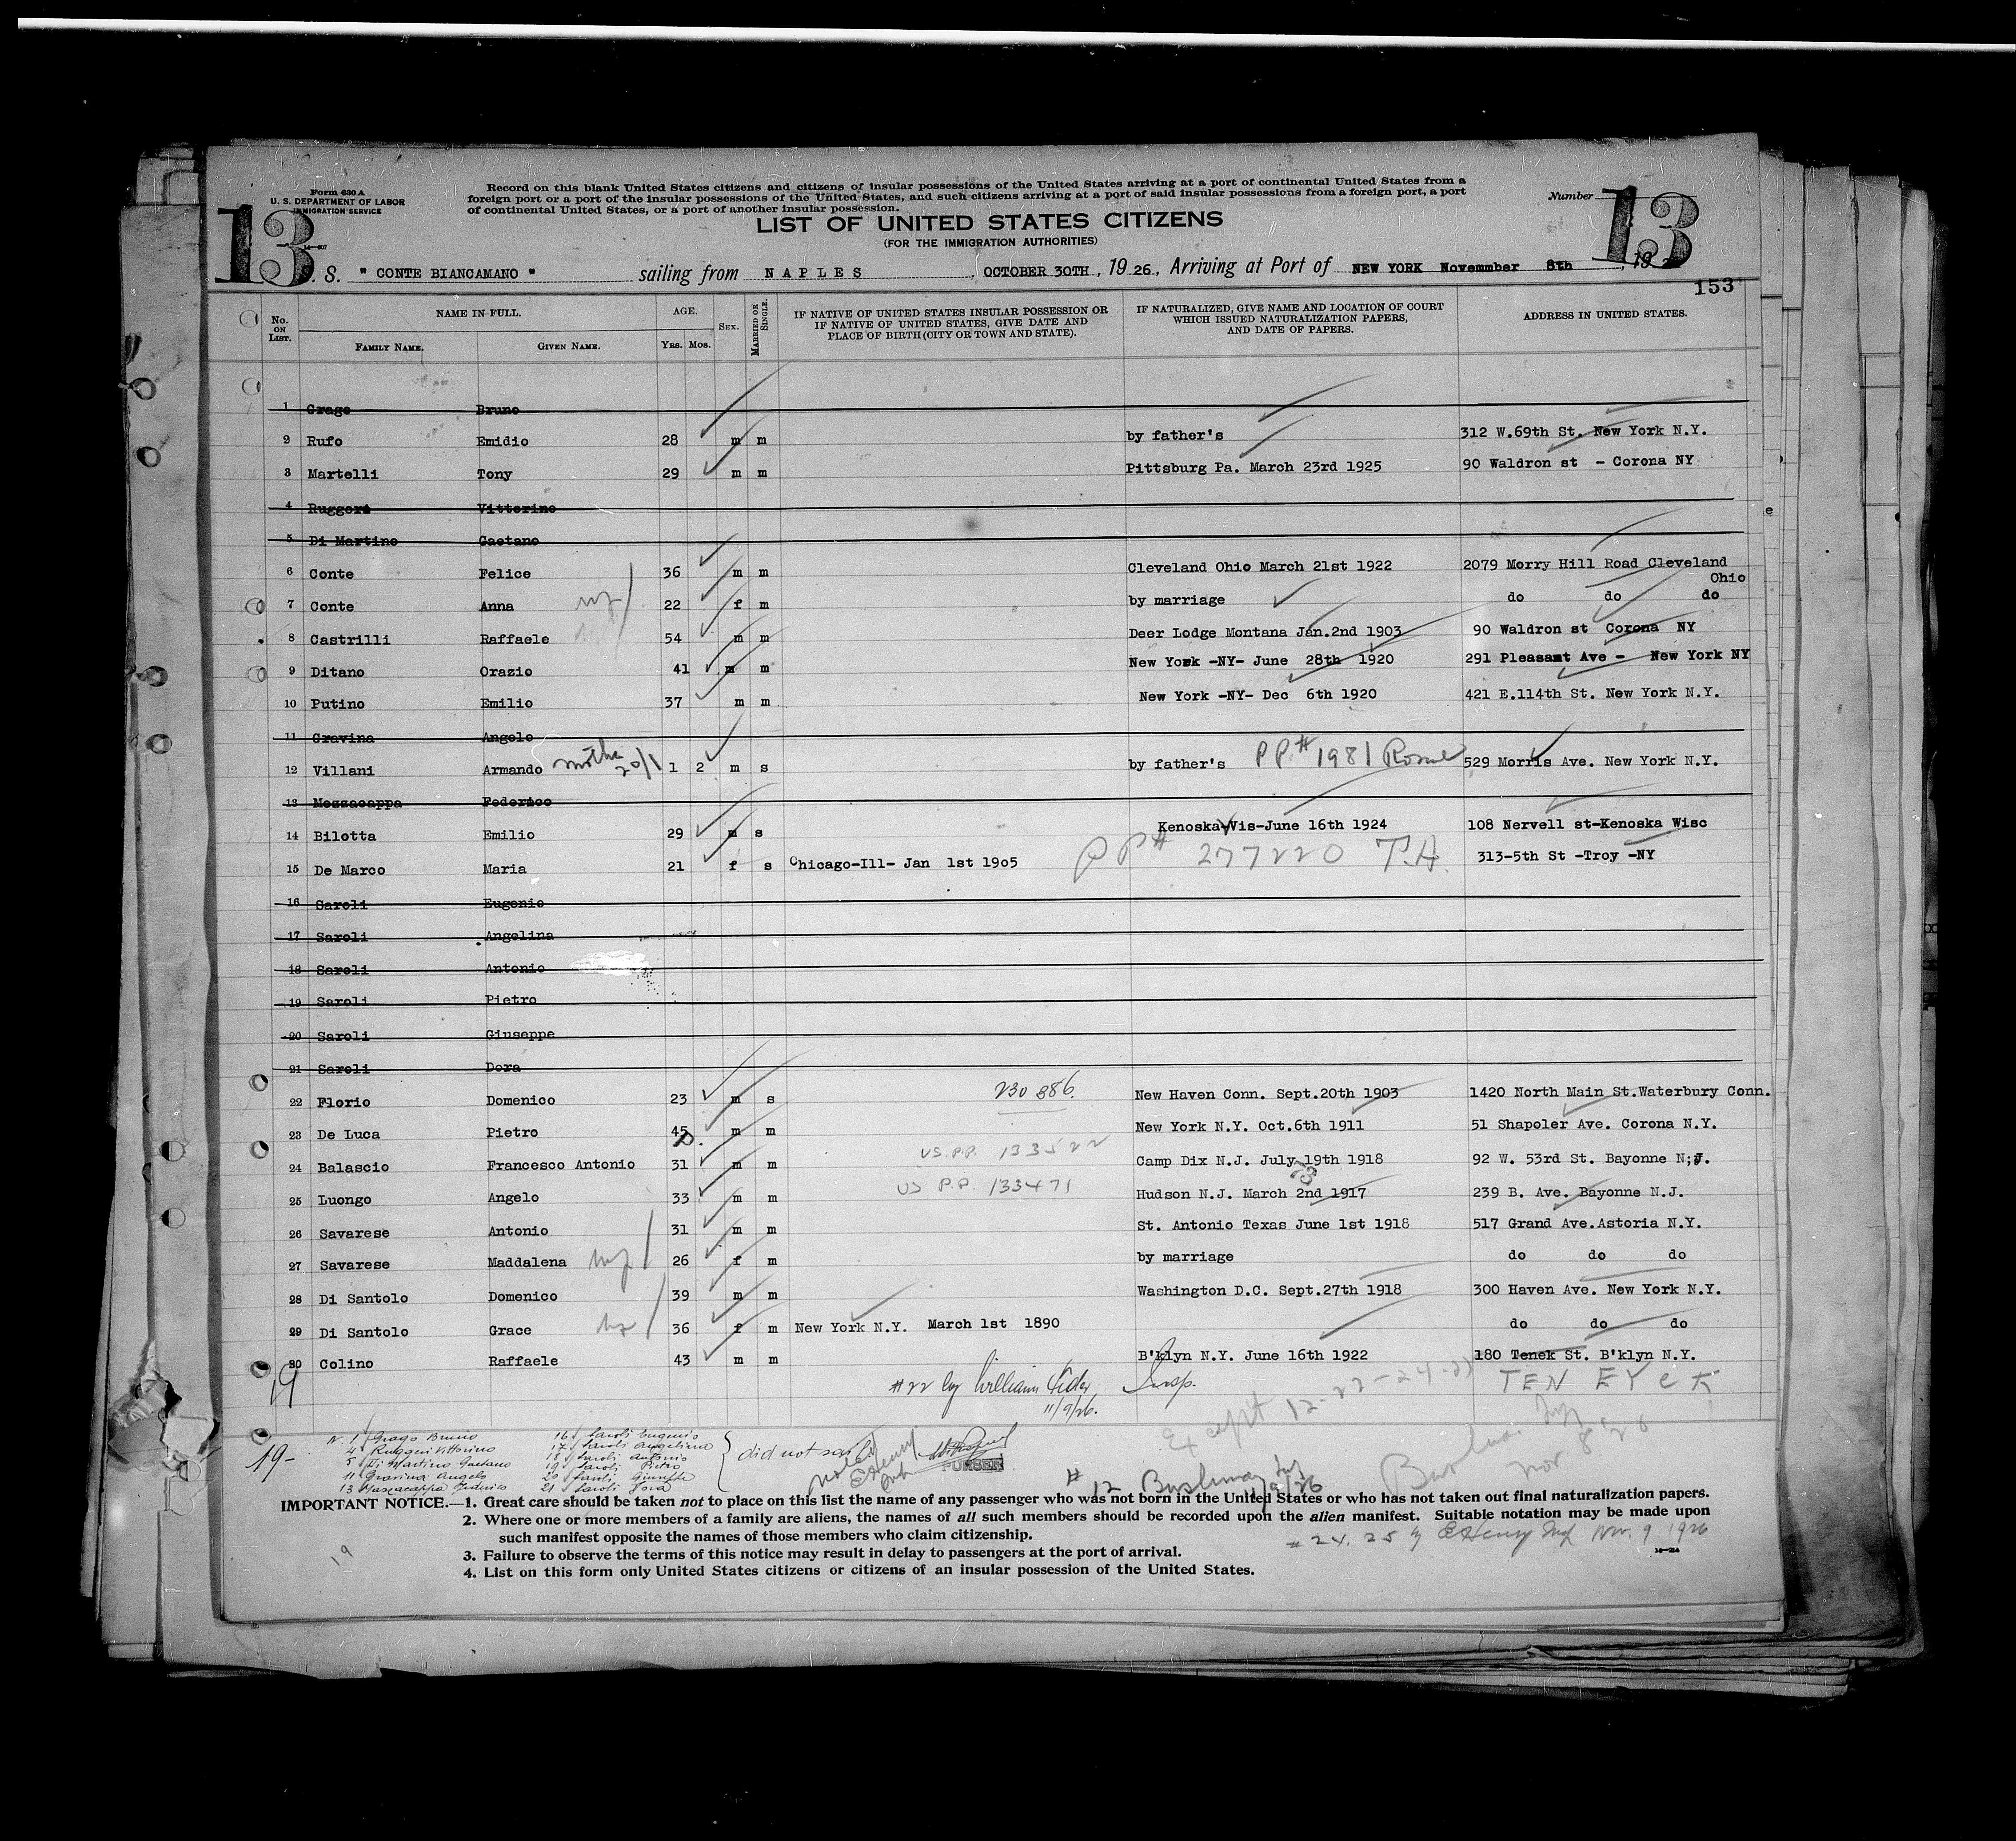 Form 630 A
U. S. DEPARTMENT OF LABOR
IMMIGRATION SERVICE
Record on this blank United States citizens and citizens of insular possessions of the United States arriving at a port of continental United States from a
foreign port or a port of the insular possessions of the United States, and such citizens arriving at a port of said insular possessions from a foreign port, a port
of continental United States, or a port of another insular possession.
Number
13
13
LIST OF UNITED STATES CITIZENS
(FOR THE IMMIGRATION AUTHORITIES)
S. " CONTE BIANCAMANO " sailing from NAPLES, OCTOBER 30TH, 1926, Arriving at Port of NEW YORK Novemmber 8th, 19
153
No. ON LIST. NAME IN FULL. AGE. SEX. MARRIED OR SINGLE. IF NATIVE OF UNITED STATES INSULAR POSSESSION OR IF NATIVE OF UNITED STATES, GIVE DATE AND PLACE OF BIRTH (CITY OR TOWN AND STATE). IF NATURALIZED, GIVE NAME AND LOCATION OF COURT WHICH ISSUED NATURALIZATION PAPERS, AND DATE OF PAPERS. ADDRESS IN UNITED STATES.
FAMILY NAME. GIVEN NAME. YRS. MOS.
1 Grago Bruno
2 Rufo Emidio 28 m m by father's 312 W.69th St. New York N.Y.
3 Martelli Tony 29 m m Pittsburg Pa. March 23rd 1925 90 Waldron st - Corona NY
4 Ruggeri Vittorino
5 Di Martino Gaetano
6 Conte Felice 36 m m Cleveland Ohio March 21st 1922 2079 Morry Hill Road Cleveland
Ohio
7 Conte Anna 22 f m by marriage do do do
8 Castrilli Raffaele 54 m m Deer Lodge Montana Jan.2nd 1903 90 Waldron st Corona NY
9 Ditano Orazio 41 m m New York -NY- June 28th 1920 291 Pleasant Ave - New York NY
10 Putino Emilio 37 m m New York -NY- Dec 6th 1920 421 E.114th St. New York N.Y.
11 Gravina Angelo
12 Villani Armando 20/1 1 2 m s by father's PP.# 1981 Rome 529 Morris Ave. New York N.Y.
13 Mezzacappa Federico
14 Bilotta Emilio 29 m s Kenoska-Vis-June 16th 1924 108 Nervell st-Kenoska Wisc
15 De Marco Maria 21 f s Chicago-Ill- Jan 1st 19o5 PP# 277220 T.A. 313-5th St -Troy -NY
16 Saroli Eugenio
17 Saroli Angelina
18 Saroli Antonio
19 Saroli Pietro
20 Saroli Giuseppe
21 Saroli Dora
22 Florio Domenico 23 m s 230886 New Haven Conn. Sept.20th 1903 1420 North Main St.Waterbury Conn.
23 De Luca Pietro 45 m m New York N.Y. Oct.6th 1911 51 Shapoler Ave. Corona N.Y.
24 Balascio Francesco Antonio 31 m m US. P.P. 133522 Camp Dix N.J. July 19th 1918 92 W. 53rd St. Bayonne N;J.
25 Luongo Angelo 33 m m US P.P. 133471 Hudson N.J. March 2nd 1917 239 B. Ave. Bayonne N.J.
26 Savarese Antonio 31 m m St. Antonio Texas June 1st 1918 517 Grand Ave.Astoria N.Y.
27 Savarese Maddalena 26 f m by marriage do do do
28 Di Santolo Domenico 39 m m Washington D.C. Sept.27th 1918 300 Haven Ave. New York N.Y.
29 Di Santolo Grace 36 f m New York N.Y. March 1st 1890 do do do
30 Colino Raffaele 43 m m B'klyn N.Y. June 16th 1922 180 Tenek St. B'klyn N.Y.
TEN EYCK
19
#22 by William Insp.
11/9/26.
Except 12-22-24-25
19-
N. 1 Grago Bruno
4 Ruggeri Vittorino
5 Di Martino Gaetano
11 Gravina Angelo
13
16 Saroli Eugenio
17 Saroli Angelina
18 Saroli Antonio
19 Saroli Pietro
20 Saroli Giuseppe
21 Saroli Dora
did not sail
PURSER
# 12 Bushway Insp 11/9/26
Nov 8 '26
IMPORTANT NOTICE.—1. Great care should be taken not to place on this list the name of any passenger who was not born in the United States or who has not taken out final naturalization papers.
2. Where one or more members of a family are aliens, the names of all such members should be recorded upon the alien manifest. Suitable notation may be made upon
such manifest opposite the names of those members who claim citizenship.
# 24. 25 by E Henry Insp Nov. 9 1926
3. Failure to observe the terms of this notice may result in delay to passengers at the port of arrival.
4. List on this form only United States citizens or citizens of an insular possession of the United States.
19